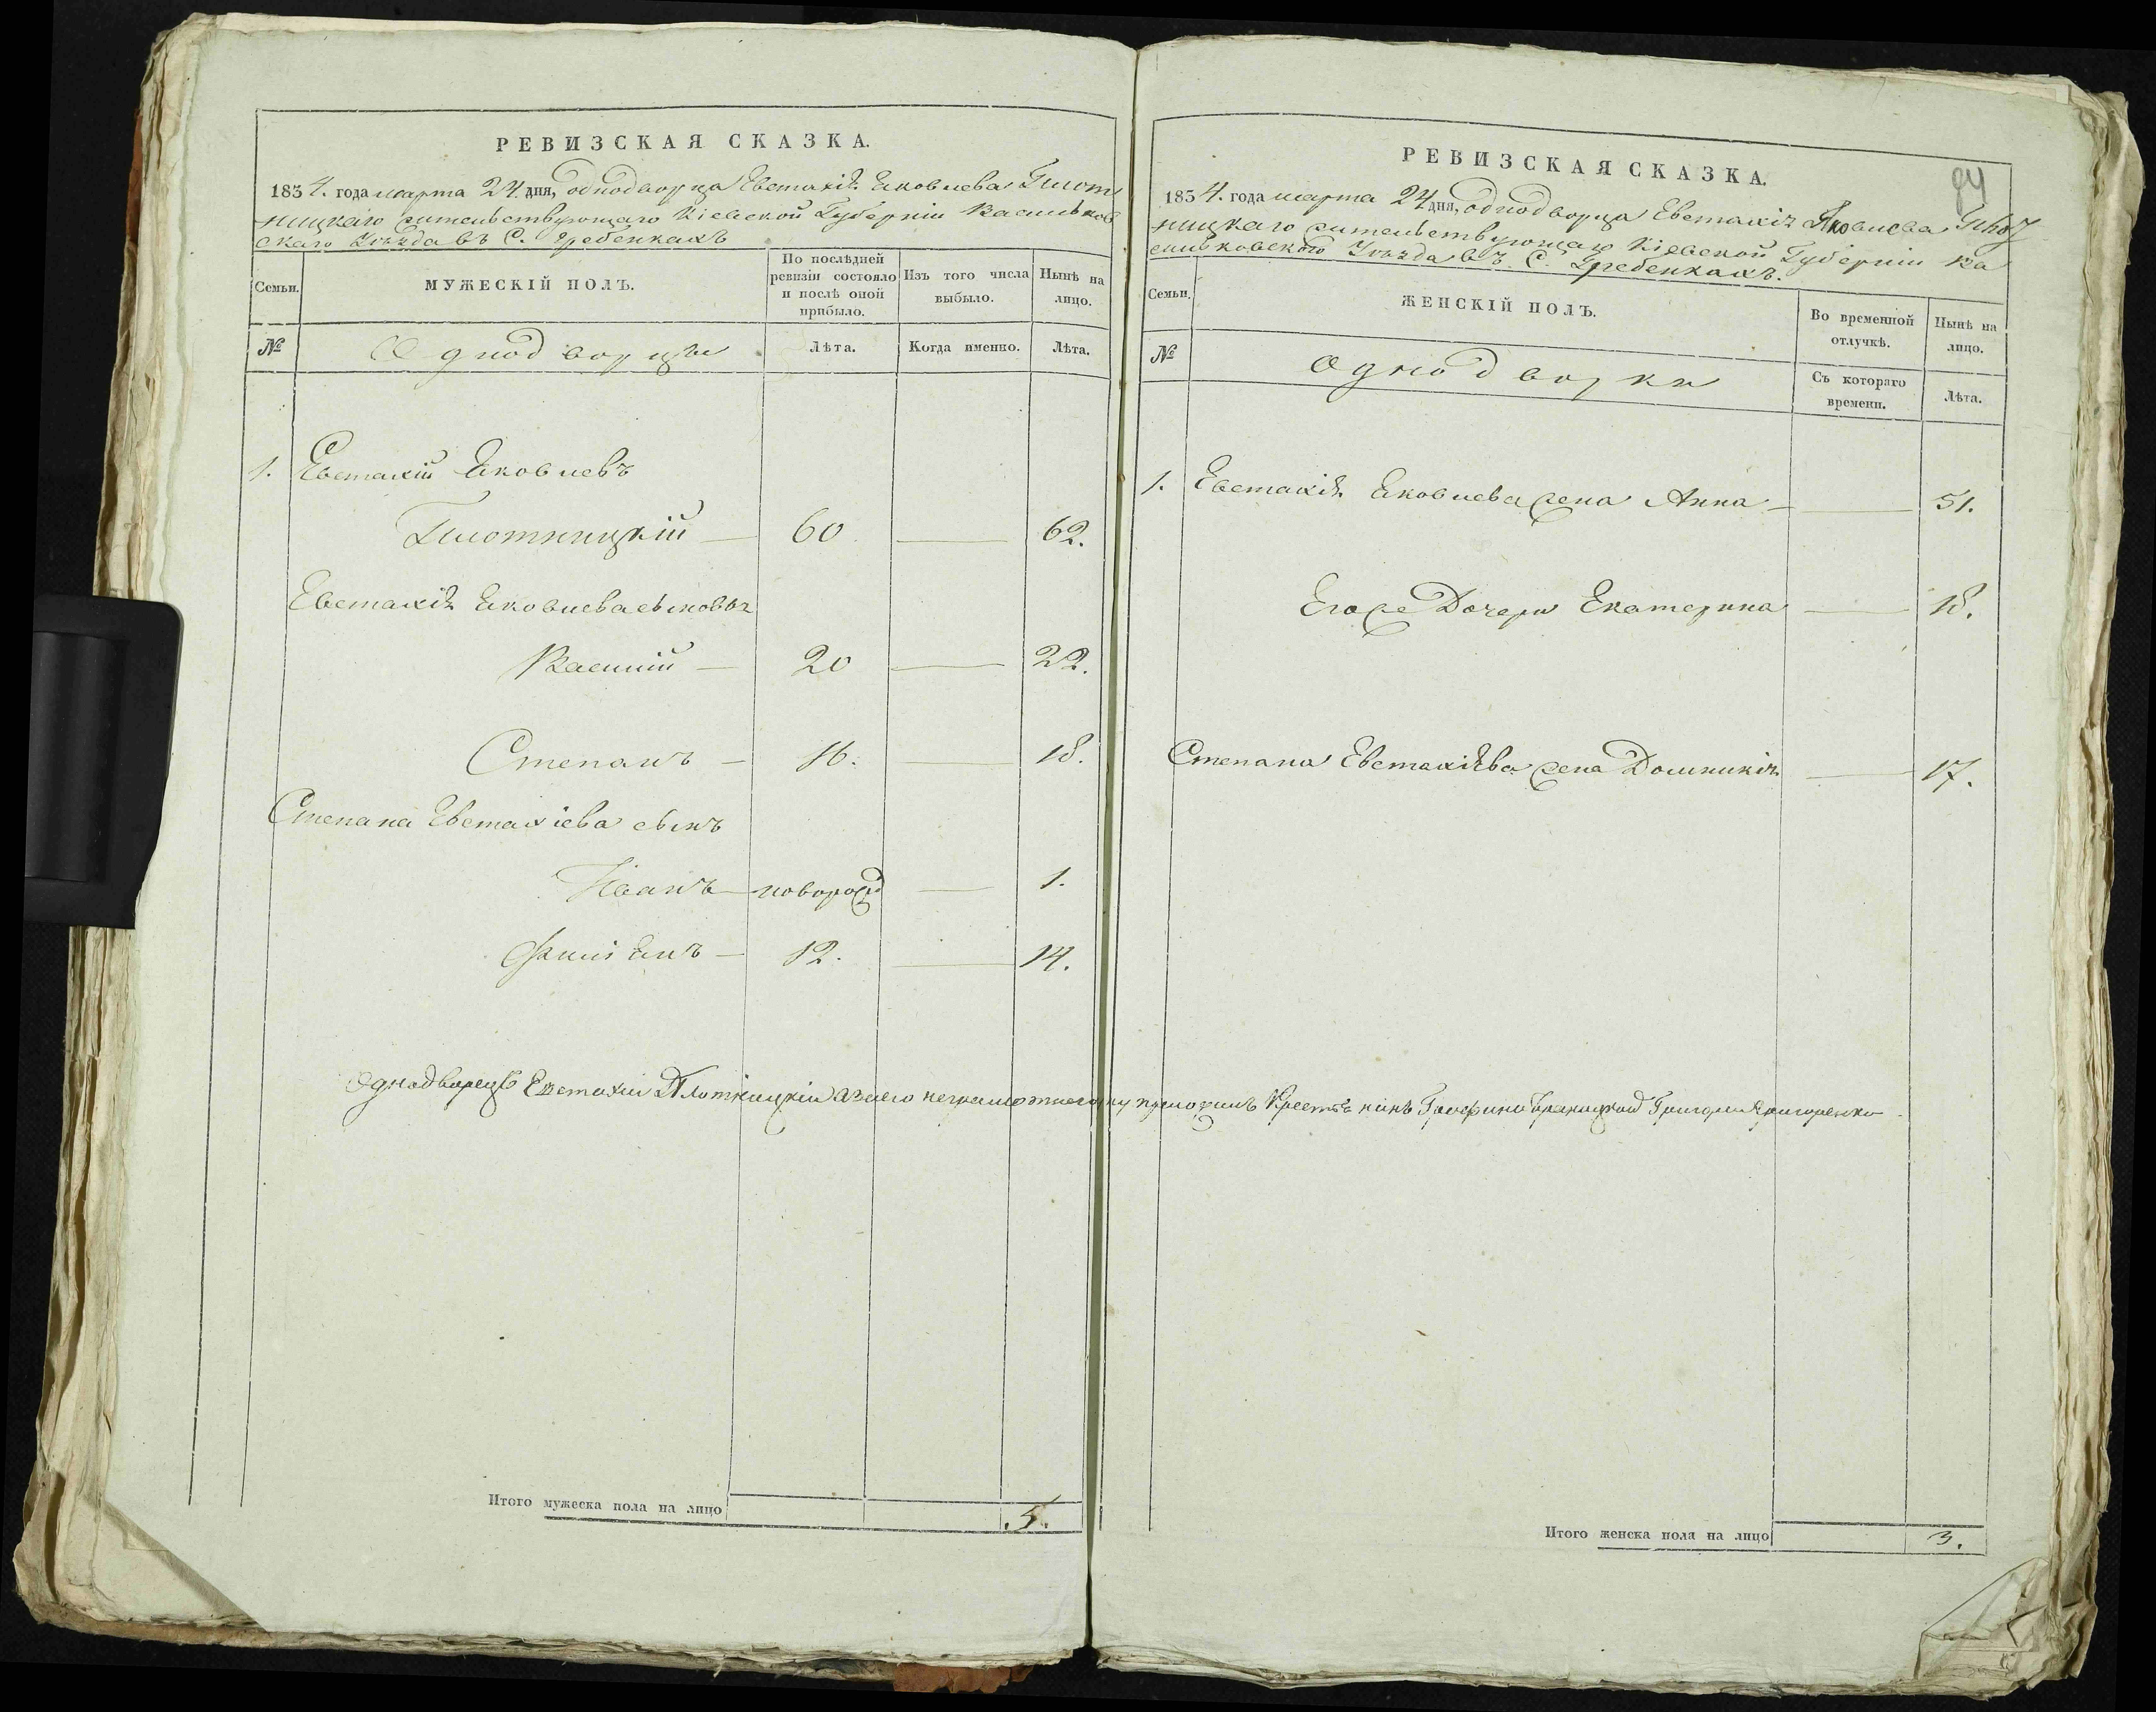 РЕВИЗСКАЯ СКАЗКА.
1854. года марта 24. дня, однодворца Евстахія Яковлева Плот
ницкаго жительствующаго Кіевской Губерніи Васильков
скаго Уѣзда въ С. Гребенкахъ
Семьи.
МУЖЕСКІЙ ПОЛЪ.
По послѣдней ревизіи состояло и послѣ оной прибыло.
Изъ того числа выбыло.
Нынѣ на лицо.
№
Однодворцы
Лѣта.
Когда именно.
Лѣта.
1. Евстахій Яковлевъ
Плотницкій — 60 — 62.
Евстахія Яковлева сыновья
Василій — 20 — 22.
Степанъ — 16. — 18.
Степана Евстахіева сынъ
Иванъ — новорожд — 1.
12. — 14.
Однодворецъ Евстахій Плотницкій а за его неграмотного руку приложилъ Крестьянинъ Графини Браницкой Григорій Григоренко
Итого мужеска пола на лицо .5.
РЕВИЗСКАЯ СКАЗКА.
94
1854. года марта 24 дня, однодворца Евстахія Яковлева Плот
ницкаго жительствующаго Кіевской Губерніи Ва
сильковскаго Уѣзда въ С. Гребенкахъ.
Семьи.
ЖЕНСКІЙ ПОЛЪ.
Во временной отлучкѣ.
Нынѣ на лицо.
№
Однодворки
Съ котораго времени.
Лѣта.
1. Евстахія Яковлева жена Анна — 51.
Его же Дочери Екатерина — 18.
Степана Евстахіева жена Домникія — 17.
Итого женска пола на лицо 3.